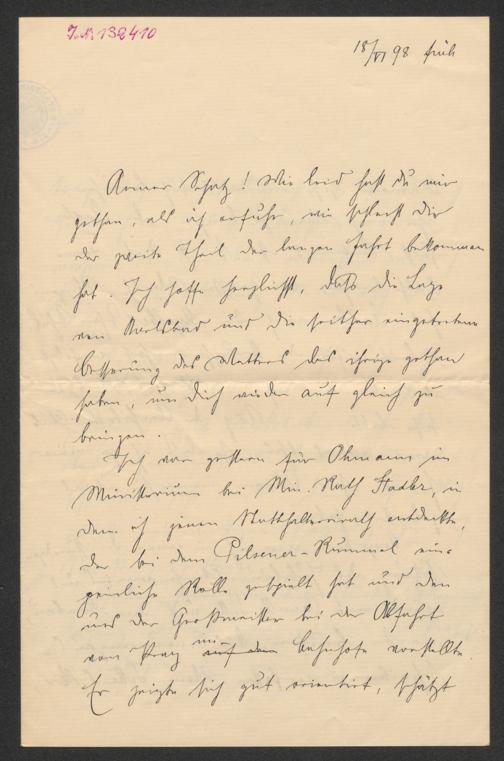 J.N. 132410
18/VI 98 früh
Armer Schatz! Wie leid hast Du mir
gethan, als ich erfuhr, wie schlecht Dir
der zweite Theil der langen Fahrt bekommen
hat. Ich hoffe herzlichst, daß die Lage
von Karlsbad und die seither eingetretene
Besserung des Wetters das ihrige gethan
haben, um Dich wieder auf gleich zu
bringen.
Ich war gestern für Ohmann im
Ministerium bei Min. Rath Stadler, in
dem ich jenen Statthaltereirath entdeckte,
der bei dem Pilsener-Rummel eine
peinliche Rolle gespielt hat und den
uns der Großmeister bei der Abfahrt
von Prag im auf dem Bahnhofe vorstellte.
Er zeigte sich gut orientirt, schätzt